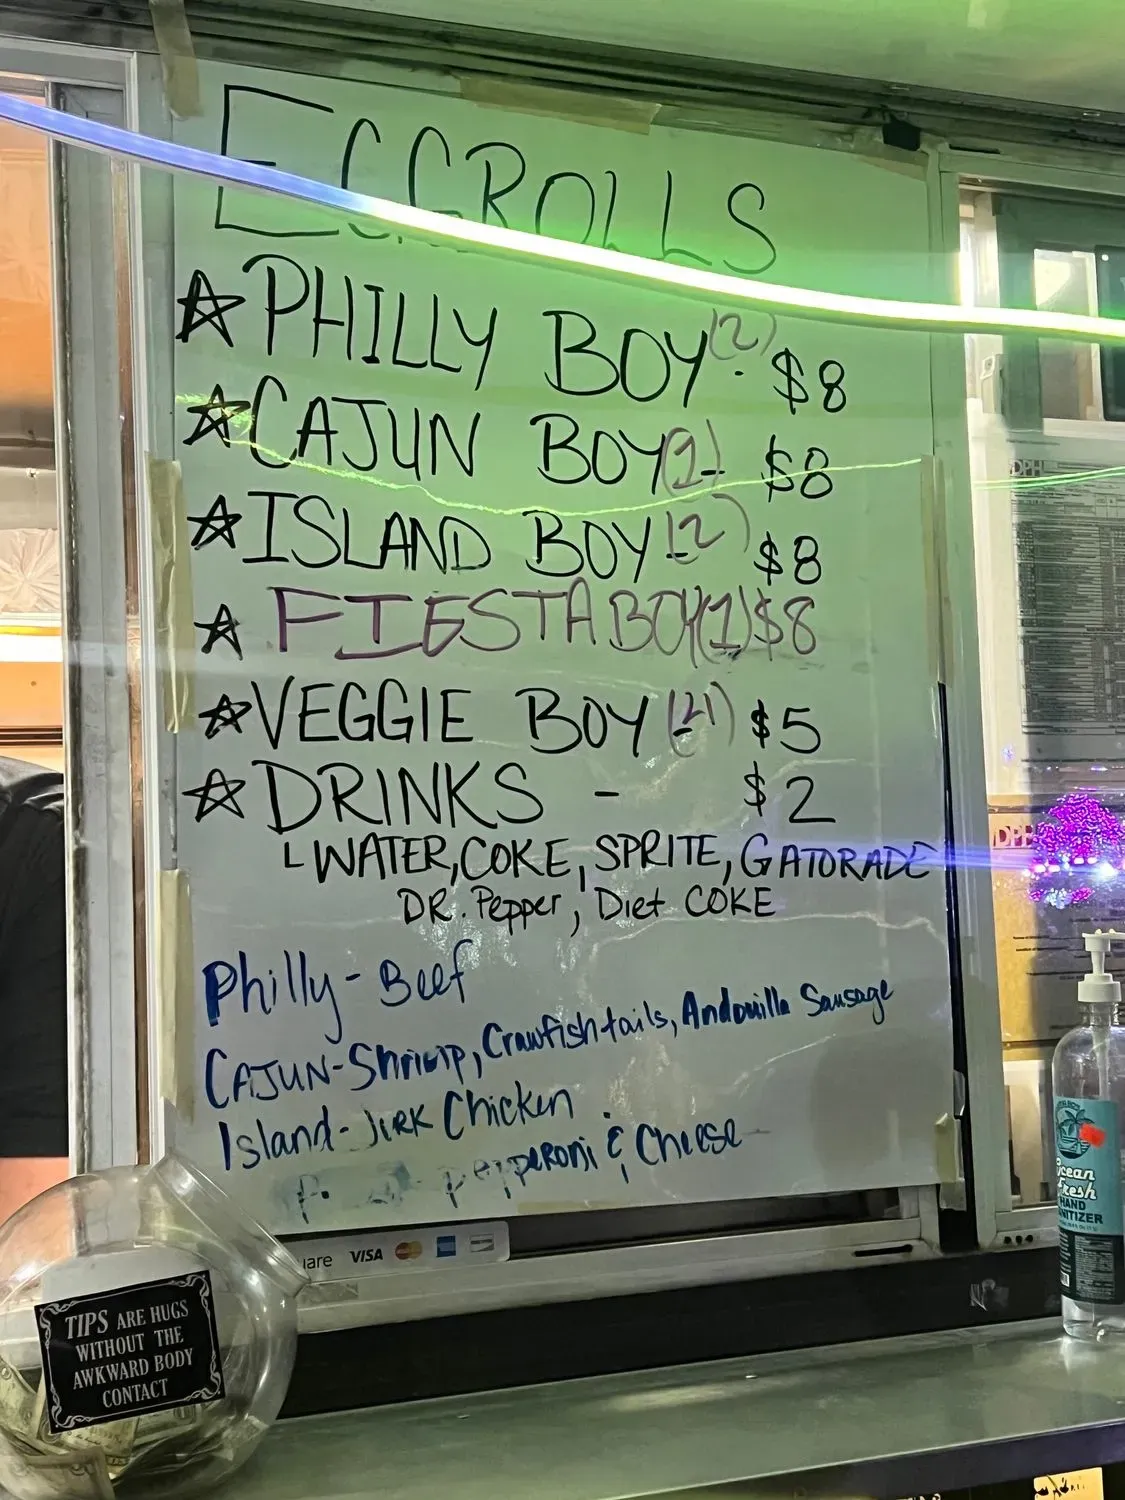 EGGROLLS
☆ PHILLY BOY (2) - $8
☆ CAJUN BOY (2) - $8
☆ ISLAND BOY (2) - $8
☆ FIESTA BOY (1) $8
☆ VEGGIE BOY - $5
☆ DRINKS - $2
WATER, COKE, SPRITE, GATORADE
DR. Pepper, Diet COKE
Philly - Beef
CAJUN - Shrimp, Crawfish tails, Andouille Sausage
Island - JERK Chicken
pepperoni & Cheese
VISA
TIPS ARE HUGS
WITHOUT THE
AWKWARD BODY
CONTACT
DPH
DPH
Ocean
Fresh
HAND
SANITIZER